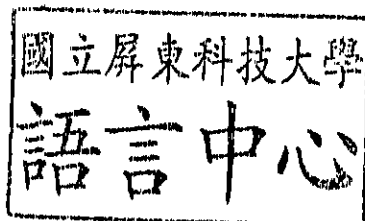 國立屏東科技大學
語言中心